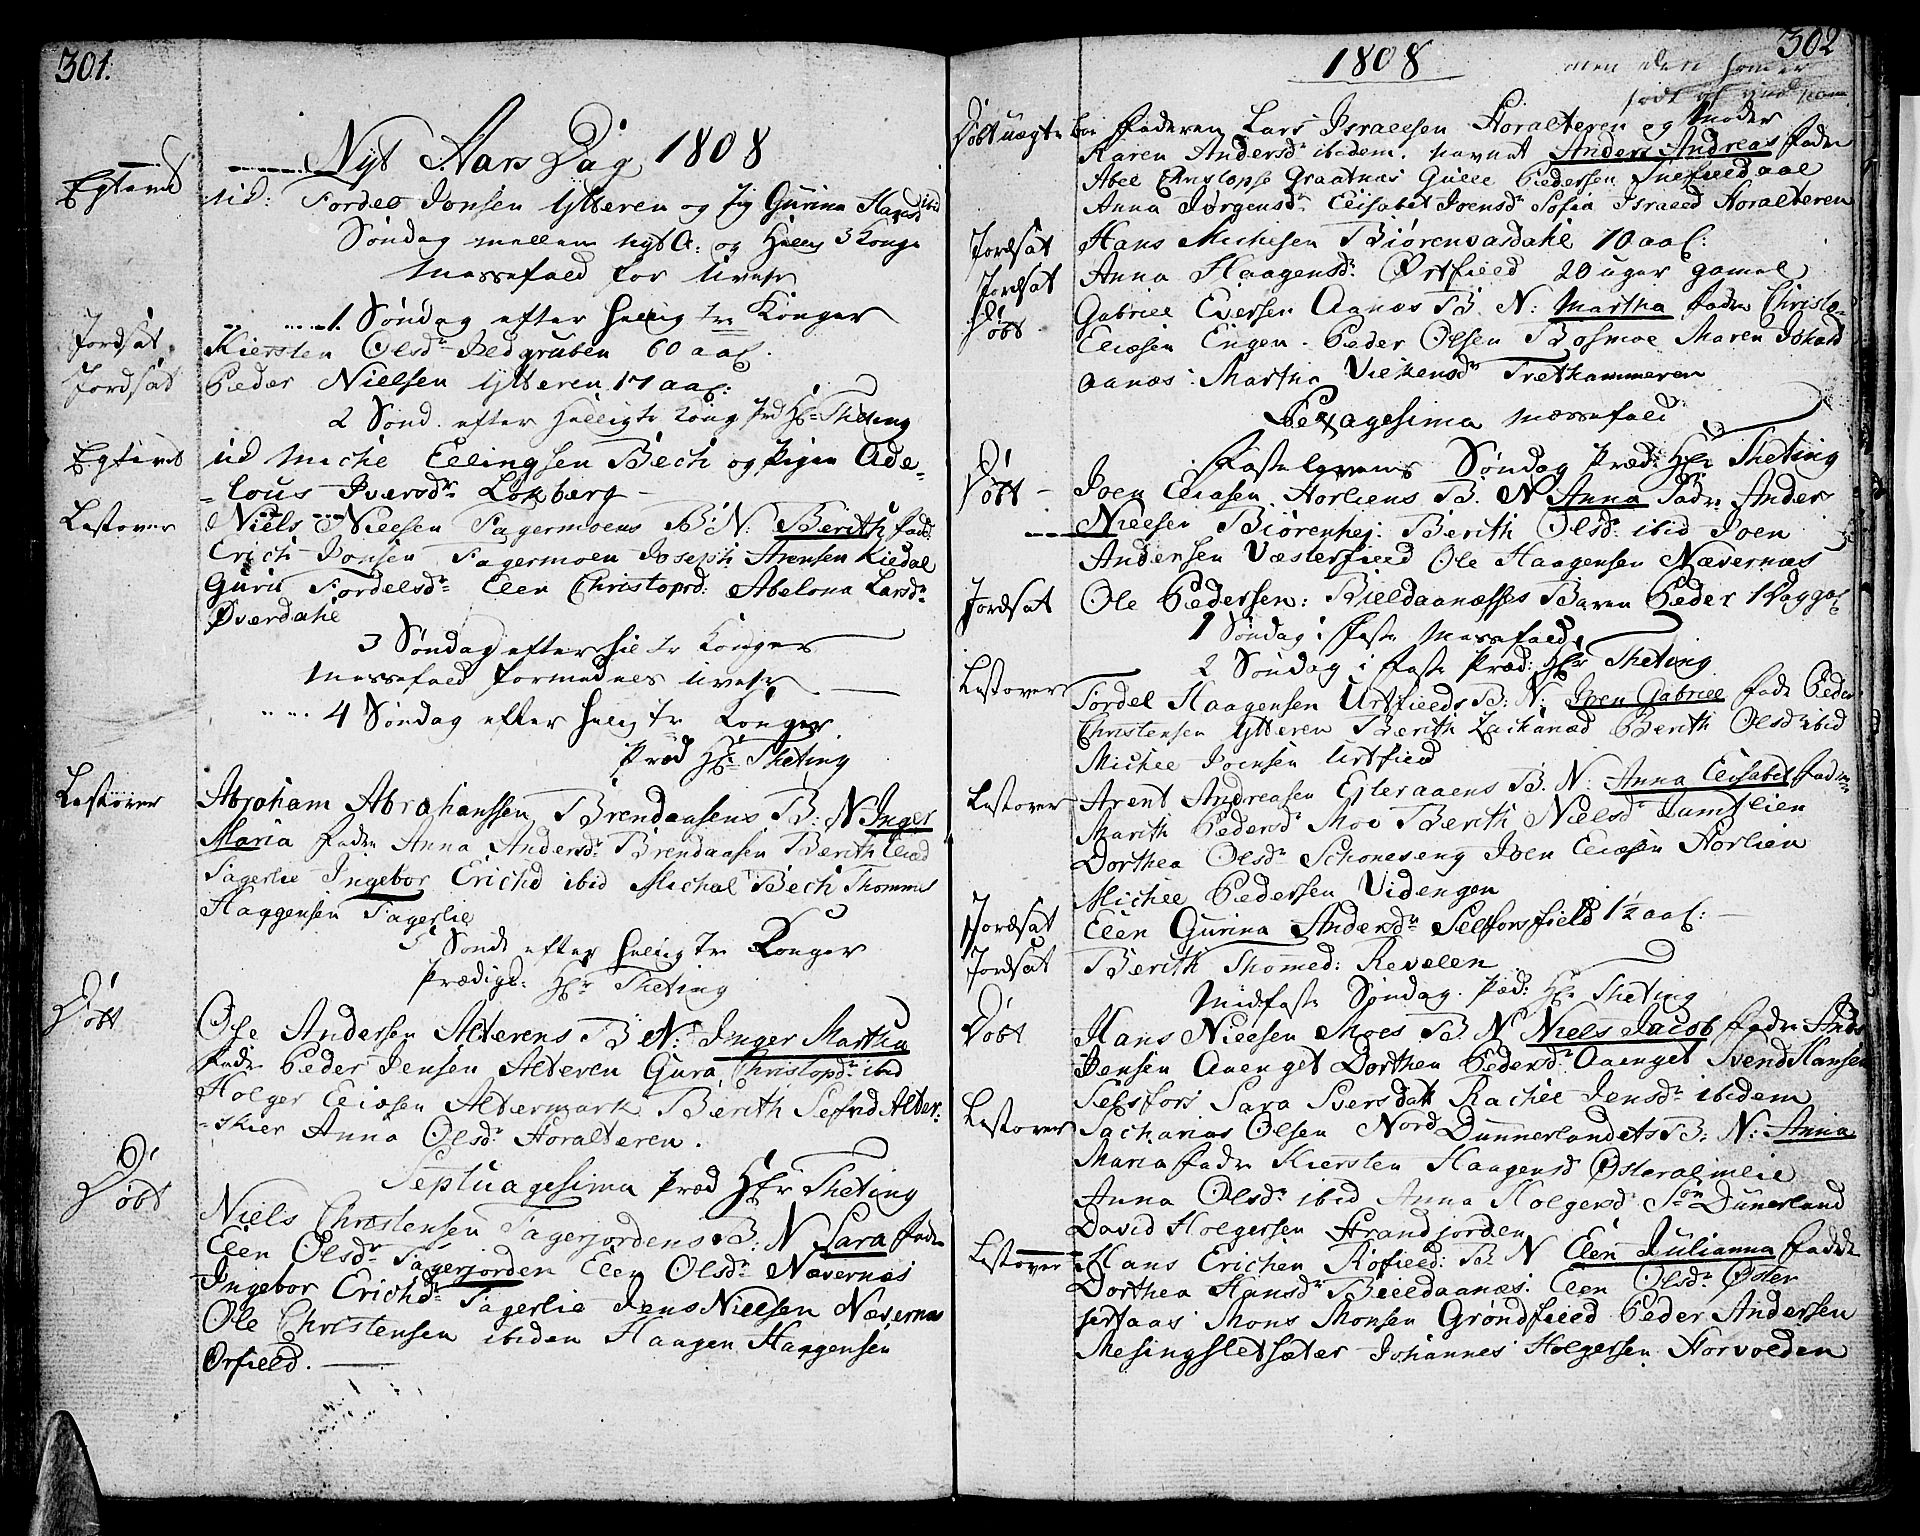 301.
Nyt Aars Dag 1808
Egteviet
vid: Tordes Jonsen Ytteren og Pig Gurina Hansd ibid
Søndag mellem nyt A: og Hellig 3 Konge
Messefald for Uveir
1 Søndag efter hellig tre Konger
Jordsat Kiersten Olsdr Jldgruben 60 aar.
Jordsat Peder Nielsen Ytteren 17 aar:
2 Sønd. efter Helligtr Kong Præd Hr Theting
Egteviet vid Michel Ellingsen Bech og Pigen Ade-
-lous Iversdr Lokberg
Lestover Niels Nielsen Fagermoens B: N: Berith fad:
Erich Jonsen Fagermoen Joseph Arensen Kildal
Guru Tordelsdr Elen Christopd: Abelona Larsdr
Øverdahl
3 Søndag efter hel tr Konger
Messefald formedels Uveir
4 Søndag efter helig tr Konger
Præd Hr Theting
Lestover Abraham Abrahamssen Brendaasens B: N Inger
Maria fadr Anna Andersdr Brendaasen Berith Eliæd
Fagerlie Ingebor Erichd ibid Michal Bech Thommes
Haggensen Fagerlie
5 Sønd efter helig Tr Konger
Prædige: Hr Theting
Døbt Ole Andersen Alterens B N: Inger Martha
fadr Peder Jensen Alteren Gura Christopdr ibid
Holger Eliæsen Altermark Berith Sefrid Alter:
-skier Anna Olsdr Horalteren.
Septuagesima præd Hr Theting
Døbt Niels Christensen Fagerjordens B: N Sara fadr
Elen Olsdr Fagerjorden Elen Olsdr Nævernæs
Ingebor Erichdr Fagerlie Jens Nielsen Nævernæs
Ole Christensen ibiden Haagen Haagensen
Ørfield.
302
1808
men den som er
født
Døbt uægte bar Faderen Lars Israelsen Horalteren og Moder
Karen Andersdr ibidem. navnet Anders Andreas fadr
Abel Christopse Graatnæs Gulle Pedersen Snefield aal
Anna Jørgensdr Elisabet Joensdr Sofia Israeld Horalteren
Jordsat Hans Michelsen Biørensardahl 70 aar:
Jordsat Anna Haagensdr: Ørtfield 20 uger gamel
Døbt Gabriel Eversen Aanæs B. N: Martha fadr Christe-
Eliæsen Engen. Peder Olsen Bosmoe Maren Johand
aanæs. Martha Vichensdr Trethammeren
Sexagesima Messefald
Fastelavens Søndag Præd: Hr Theting
Døbt Joen Eliasen Horliens B. N Anna Fadr Anders
Nielsen Biørenhej. Berith Olsdr ibid Joen
Andersen Vesterfield Ole Haagensen Nævernæs
Jordsat Ole Pedersen: Bieldaanæsses Baren Peder 1 Dag gal
1 Søndag i faste Messefald
2 Søndag i faste Præd: Hr Theting
Lestover Tordel Haagensen Urtfields B: N: Joen Gabriel fadr Peder
Christensen Ytteren Berith Zachariæd Berith Olsdr ibid
Michel Joensen Urtfield
Lestover Arent Andreasen Ejteraaens B. N: Anna Elisabet fadr
Marith Pedersdr Moe Berith Nielsdr Jamtlien
Dorthea Olsdr Schoneseng Joen Eliæsen Horlien
Michel Pedersen Videngen
Jordsat Elen Gurina Andersdr Selforsfield 1½ aar:
Jordsat Berith Thomed: Revelen
Midfaste Søndag. Præd: Hr Theting
Døbt Hans Nielsen Moes B N Niels Jacob fadr Anders
Jensen Aaenget Dorthea Pedersdr Aaenget Svend Hansen
Selsfors Sara Iversdatt Rachel Jensdr ibidem
Lestover Sacharias Olsen Nord Dunnerlandets B: N: Anna
Maria fadr Kiersten Haagensd Østeralmlie
Anna Olsdr ibid Anna Holgersdr Søn Dunerland
David Holgersen Strandjorden
Lestover Hans Erichen Røfield: B N Elen Julianna fadde
Dorthea Hansdr Bieldaanæs: Elen Olsdr Øster
sertaas Mons Monsen Grøndfield Peder Andersen
Mesingsletsæter Johannes Holgersen Horvolden